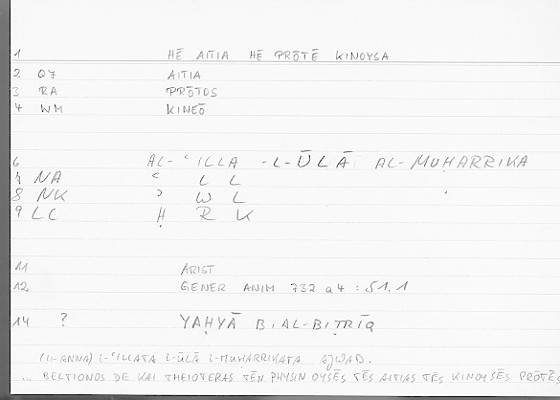 1 HĒ AITIA HĒ PRŌTĒ KINOYSA
2 Q7 AITIA
3 RA PRŌTOS
4 WM KINEŌ
6 AL-ʿILLA -L-ŪLĀ AL-MUḤARRIKA
7 NA ʿ L L
8 NK ʾ W L
9 LC Ḥ R K
11 ARIST
12 GENER ANIM 732 a4 : 51.1
14 ? YAḤYĀ B. AL-BIṬRĪQ
(LI-ANNA) L-ʿILLATA L-ŪLĀ L-MUḤARRIKATA AǦWAD.
... BELTIONOS DE KAI THEIOTERAS TĒN PHYSIN OYSĒS TĒS AITIAS TĒS KINOYSĒS PRŌTĒS